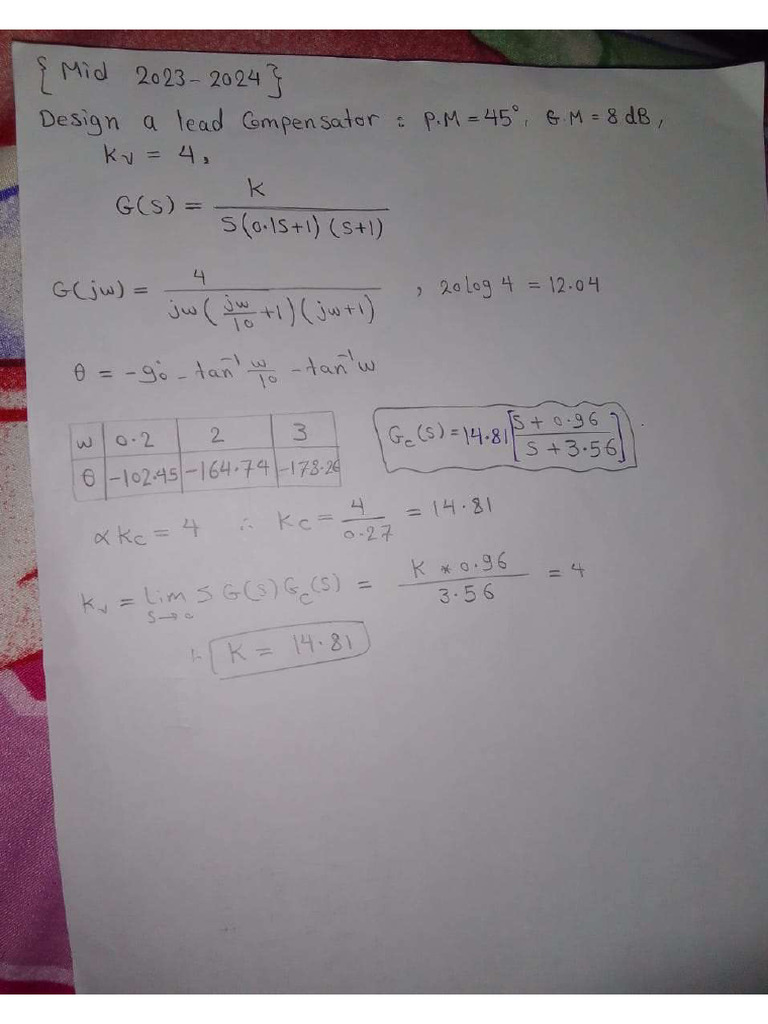 {Mid 2023-2024}
Design a lead Compensator : P.M = 45°, G.M = 8 dB,
Kv = 4,
G(S) = K / S(0.1S+1)(S+1)
G(jw) = 4 / jw(jw/10 +1)(jw+1) , 20 log 4 = 12.04
θ = -90° - tan⁻¹ w/10 - tan⁻¹ w
w 0.2 2 3
θ -102.45 -164.74 -178.26
Gc(S) = 14.81 [S + 0.96 / S + 3.56]
αKc = 4 ∴ Kc = 4/0.27 = 14.81
Kv = Lim S→0 S G(S) Gc(S) = K * 0.96 / 3.56 = 4
∴ K = 14.81